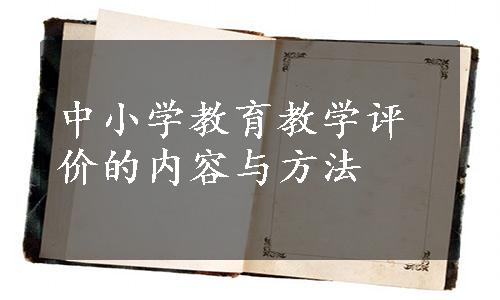 中小学教育教学评
价的内容与方法